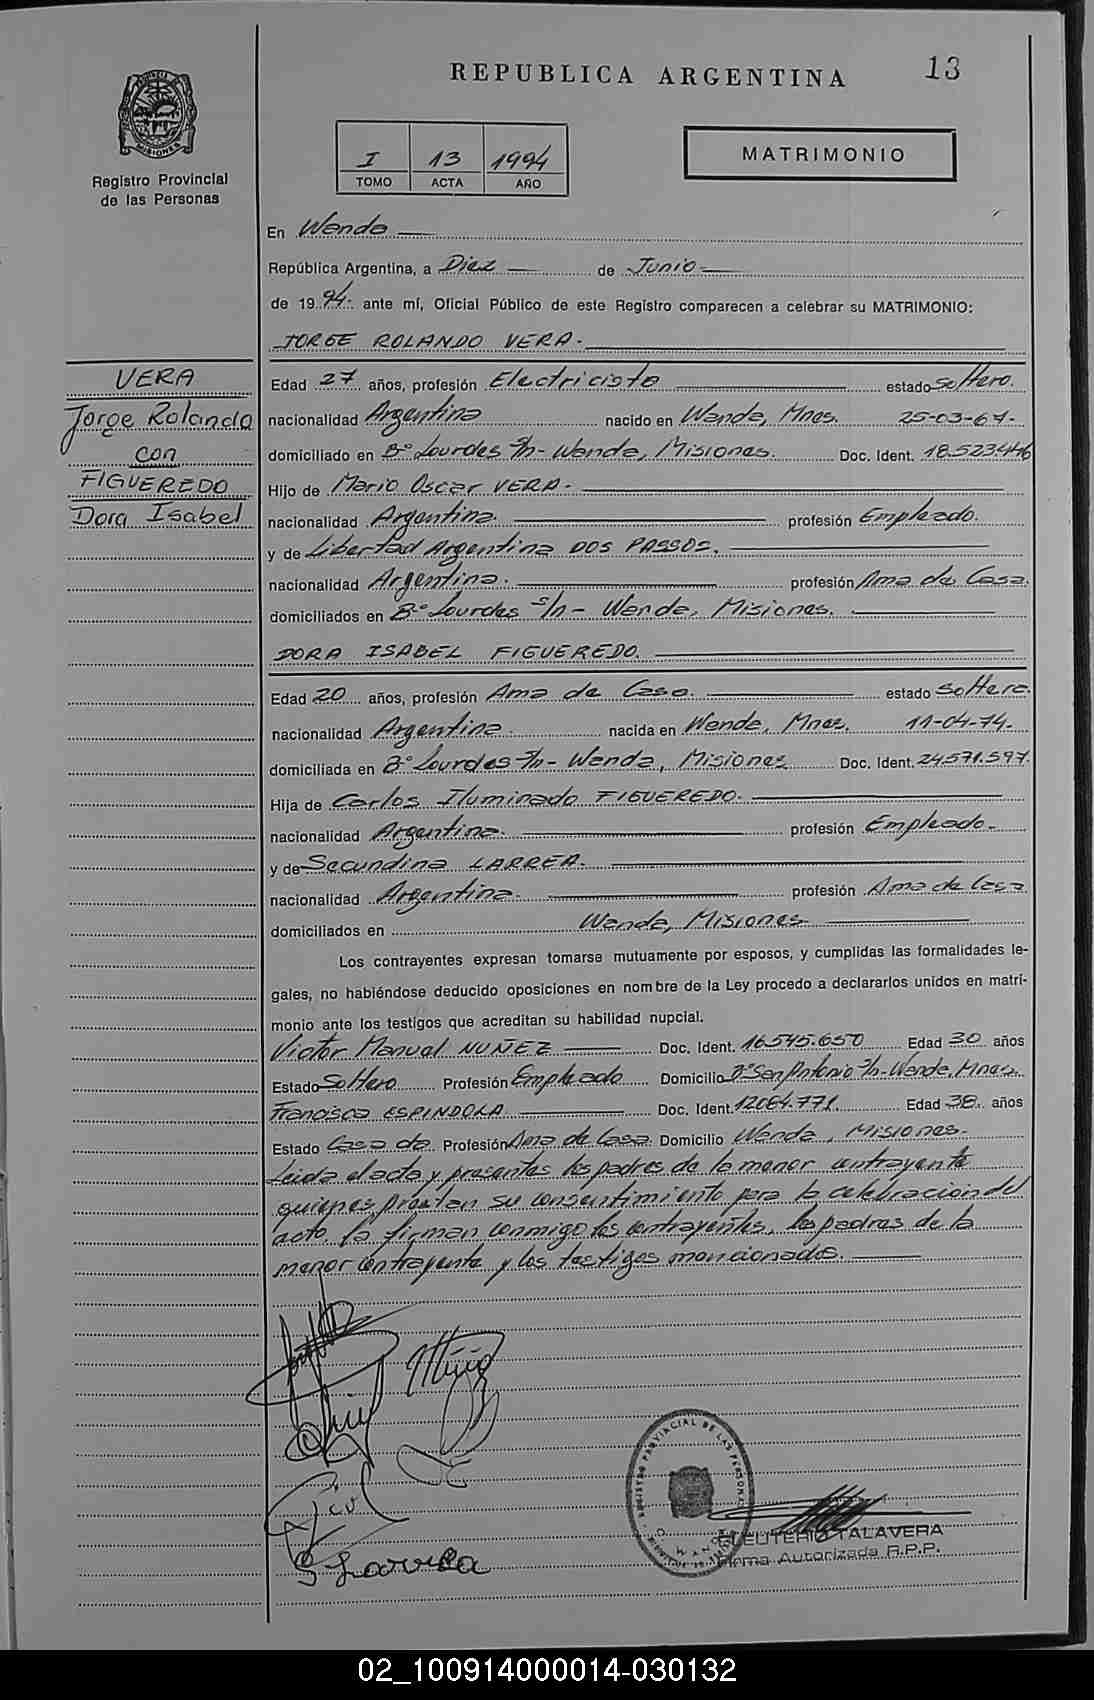 REPUBLICA ARGENTINA
13
MISIONES
Registro Provincial
de las Personas
I 13 1994
TOMO ACTA AÑO
MATRIMONIO
En Wanda
República Argentina, a Diez de Junio
de 1994 ante mí, Oficial Público de este Registro comparecen a celebrar su MATRIMONIO:
JORGE ROLANDO VERA.
VERA
Jorge Rolando
con
FIGUEREDO
Dora Isabel
Edad 27 años, profesión Electricista estado soltero.
nacionalidad Argentina nacido en Wanda, Mnes. 25-03-67-
domiciliado en B° Lourdes S/n- Wanda, Misiones. Doc. Ident. 18.523446
Hijo de Mario Oscar VERA-
nacionalidad Argentina. profesión Empleado.
y de Libertad Argentina DOS PASSOS.
nacionalidad Argentina. profesión Ama de Casa.
domiciliados en B° Lourdes S/n- Wanda, Misiones.
DORA ISABEL FIGUEREDO.
Edad 20 años, profesión Ama de Casa. estado soltera.
nacionalidad Argentina. nacida en Wanda, Mnes. 11-04-74-
domiciliada en B° Lourdes S/n- Wanda, Misiones Doc. Ident. 24.571.597.
Hija de Carlos Iluminado FIGUEREDO.
nacionalidad Argentina. profesión Empleado.
y de Secundina LARREA.
nacionalidad Argentina. profesión Ama de Casa
domiciliados en Wanda, Misiones
Los contrayentes expresan tomarse mutuamente por esposos, y cumplidas las formalidades le-
gales, no habiéndose deducido oposiciones en nombre de la Ley procedo a declararlos unidos en matri-
monio ante los testigos que acreditan su habilidad nupcial.
Victor Manual NUÑEZ Doc. Ident. 16.545.650 Edad 30 años
Estado Soltero Profesión Empleado Domicilio B° San Antonio S/n- Wanda, Mnes.
Francisca ESPINDOLA. Doc. Ident. 12064.771. Edad 38. años
Estado Casada. Profesión Ama de Casa. Domicilio Wanda, Misiones.
Leida el acta y presentes los padres de la menor contrayente
quienes prestan su consentimiento para la celebracion del
acto, la firman conmigo los contrayentes, los padres de la
menor contrayente y los testigos mencionados.
S Larrea
REGISTRO PROVINCIAL DE LAS PERSONAS
ELEUTERIO TALAVERA
Firma Autorizada R.P.P.
02_100914000014-030132